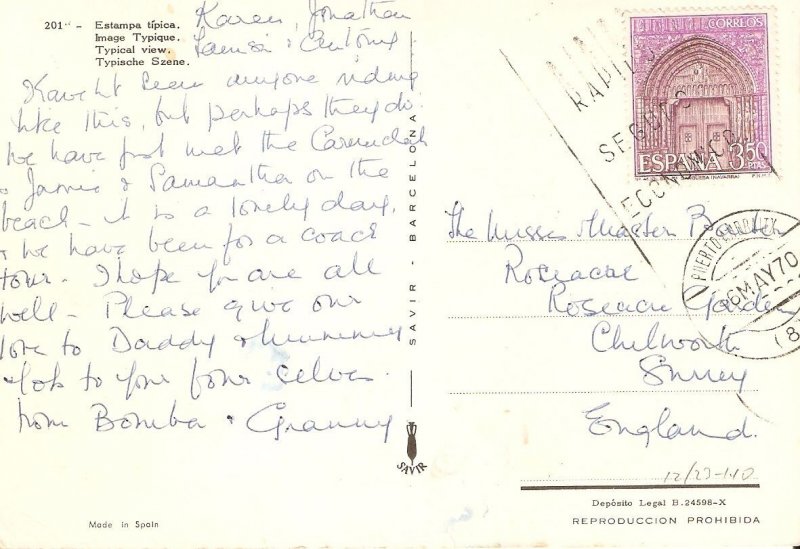 201 - Estampa típica.
Image Typique.
Typical view.
Typische Szene.
Karen, Jonathan
Haven't seen anyone riding
like this, but perhaps they do.
We have just met the
Jamie & Samantha on the
beach - it is a lovely day.
& we have been for a coach
tour. I hope you are all
well - Please give our
love to Daddy & Mummy
& lots to your four selves
from Bomba & Granny
SAVIR - BARCELONA
SAVIR
Made in Spain
CORREOS
ESPAÑA 3,50
PTAS
RAPIDO
SEGURO
ECONOMICO
PUERTO
MAY 70
The Misses & Master
Roseacre
Roseacre Gardens
Chilworth
Surrey
England.
12/23-140
Depósito Legal B. 24598-X
REPRODUCCION PROHIBIDA